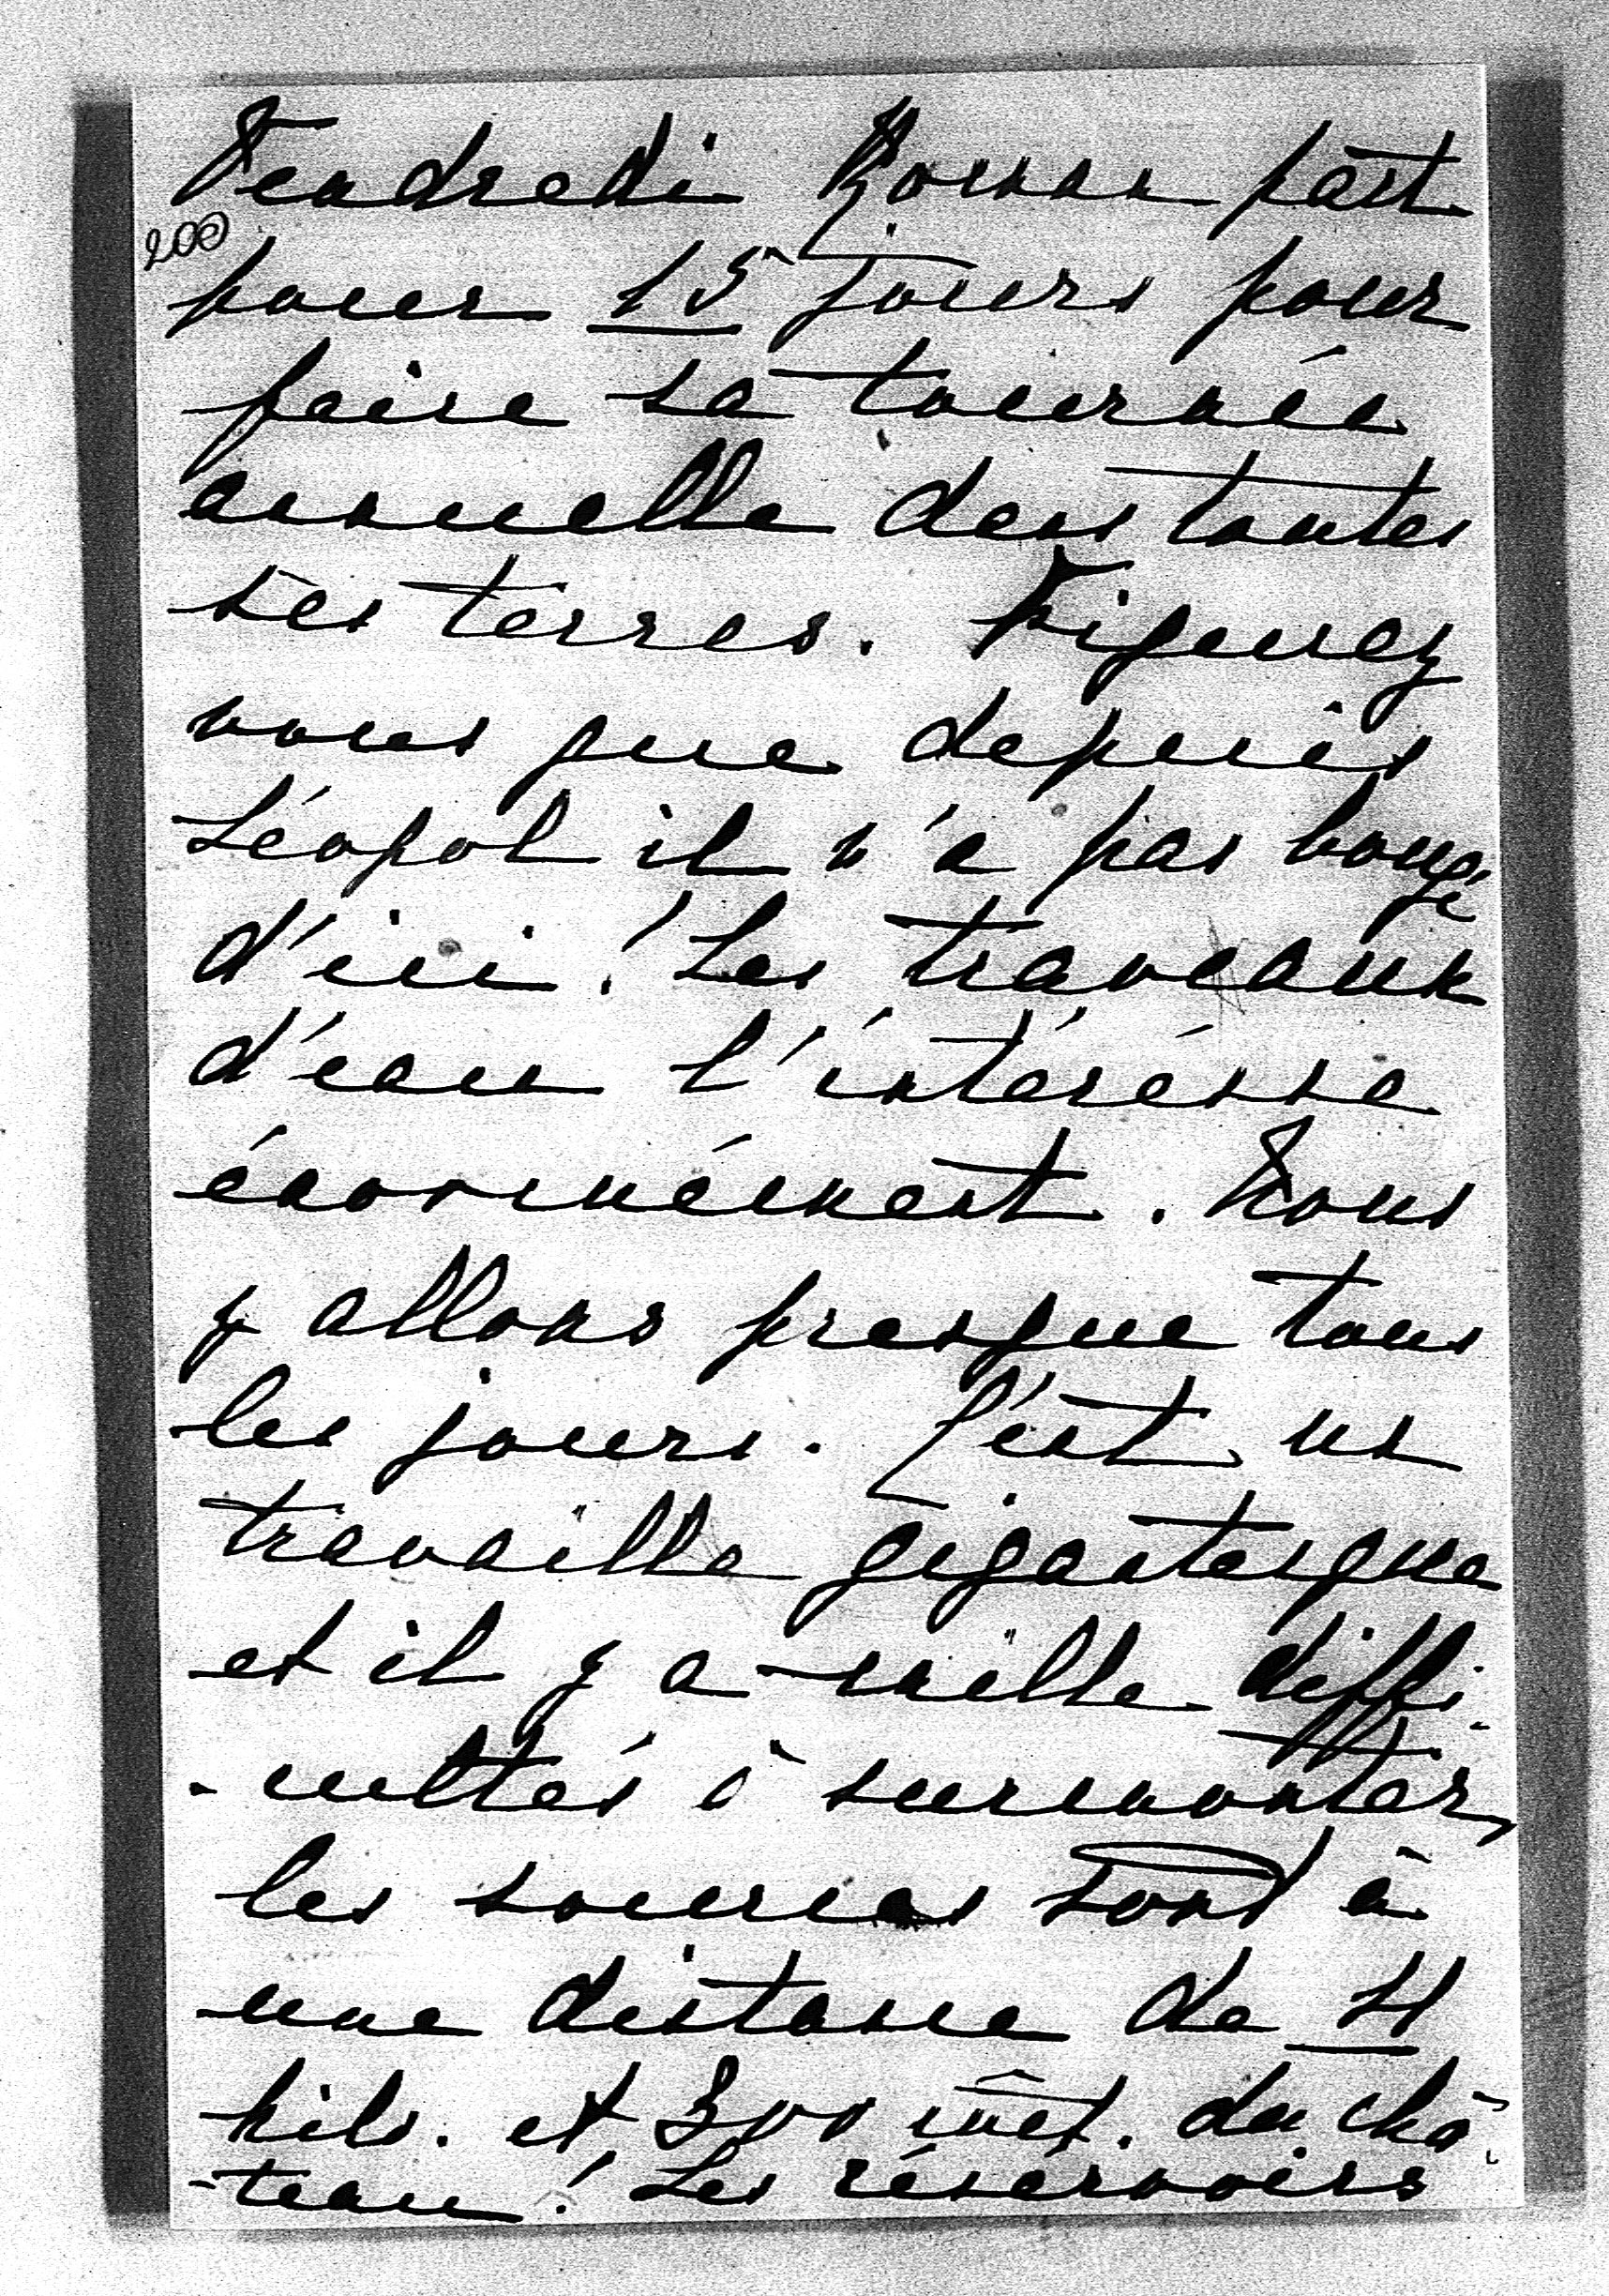 Vendredi Roman part
200
pour 15 jours pour
faire sa tournée
annuelle dans toutes
ses terres. Figurez
vous que depuis
Léopol il n'a pas bougé
d'ici! Les traveaux
d'eau l'intéresse
énorméement. Nous
y allons presque tous
les jours. C'est un
travaille gigantesque
et il y a mille diffi-
-cultés à surmonter,
les sources sont à
une distance de 4
kilo. et 300 mèt. du châ-
-teau! Les réservoirs